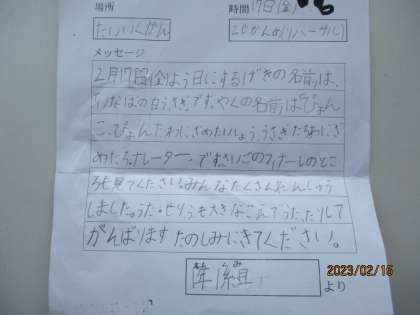 場所
時間17日(金)
たいいくかん
2じかんめ(リハーサル)
メッセージ
2月17日(金)よう日にするげきの名前は、
いなばの白うさぎです。やくの名前はぴょん
こ、ぴょんた、わにざめたいしょう、うさぎたちわにざ
めたち、ナレーターですさいごのフィナーレのとこ
ろも見てくださいみんなたくさんれんしゅう
しましたうた・せりふも大きなこえでうたったりして
がんばります たのしみにきてください。
より
2023/02/16